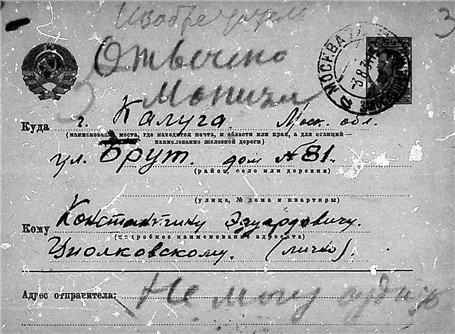 Изобретателю
3
Отвечено
МОСКВА
3
Куда г. Калуга. Моск. обл.
(наименование места, где находится почта, и области или края, а для станций —
наименование железной дороги)
ул. Брут. дом № 81.
(район, село или деревня)
(улица, № дома и квартиры)
Кому Константину Эдуардовичу
(подробное наименование адресата)
Циолковскому. (лично).
Адрес отправителя:
Не могу